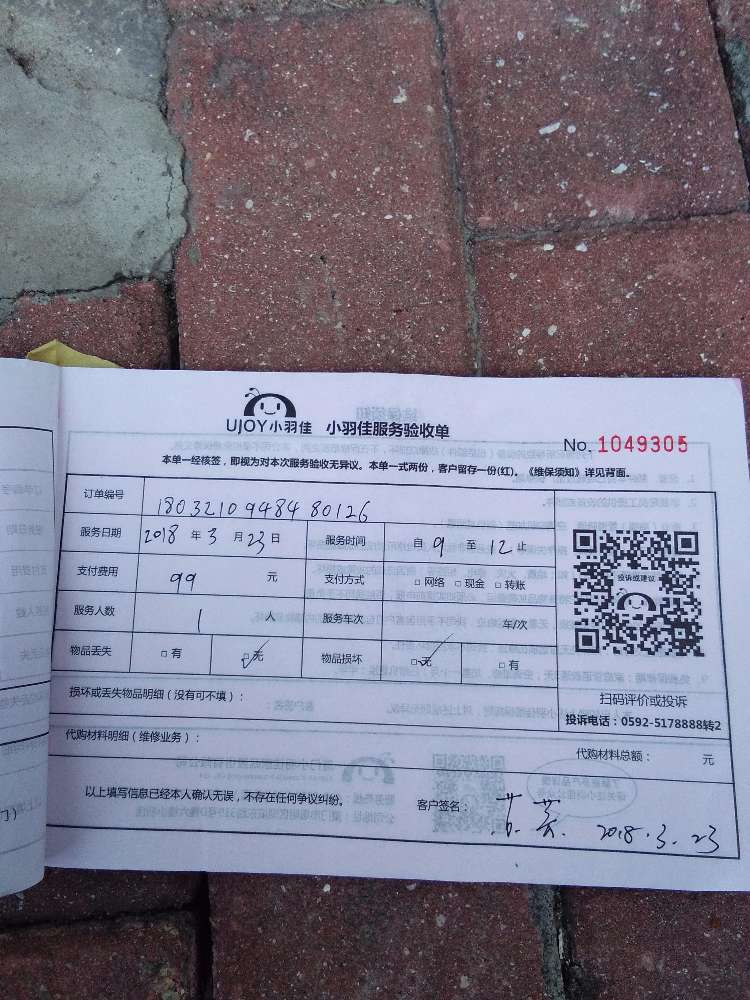 UJOY小羽佳 小羽佳服务验收单
No. 1049305
本单一经核签，即视为对本次服务验收无异议。本单一式两份，客户留存一份(红)。《维保须知》详见背面。
订单编号 18032109484 80126
服务日期 2018 年 3 月 23 日 服务时间 自 9 至 12 止
支付费用 99 元 支付方式 □网络 □现金 □转账
投诉或建议
服务人数 1 人 服务车次 车/次
物品丢失 □有 □无 物品损坏 □无 □有
扫码评价或投诉
损坏或丢失物品明细（没有可不填）：
投诉电话：0592-5178888转2
代购材料明细（维修业务）：
代购材料总额： 元
以上填写信息已经本人确认无误，不存在任何争议纠纷。 客户签名： 2018.3.23